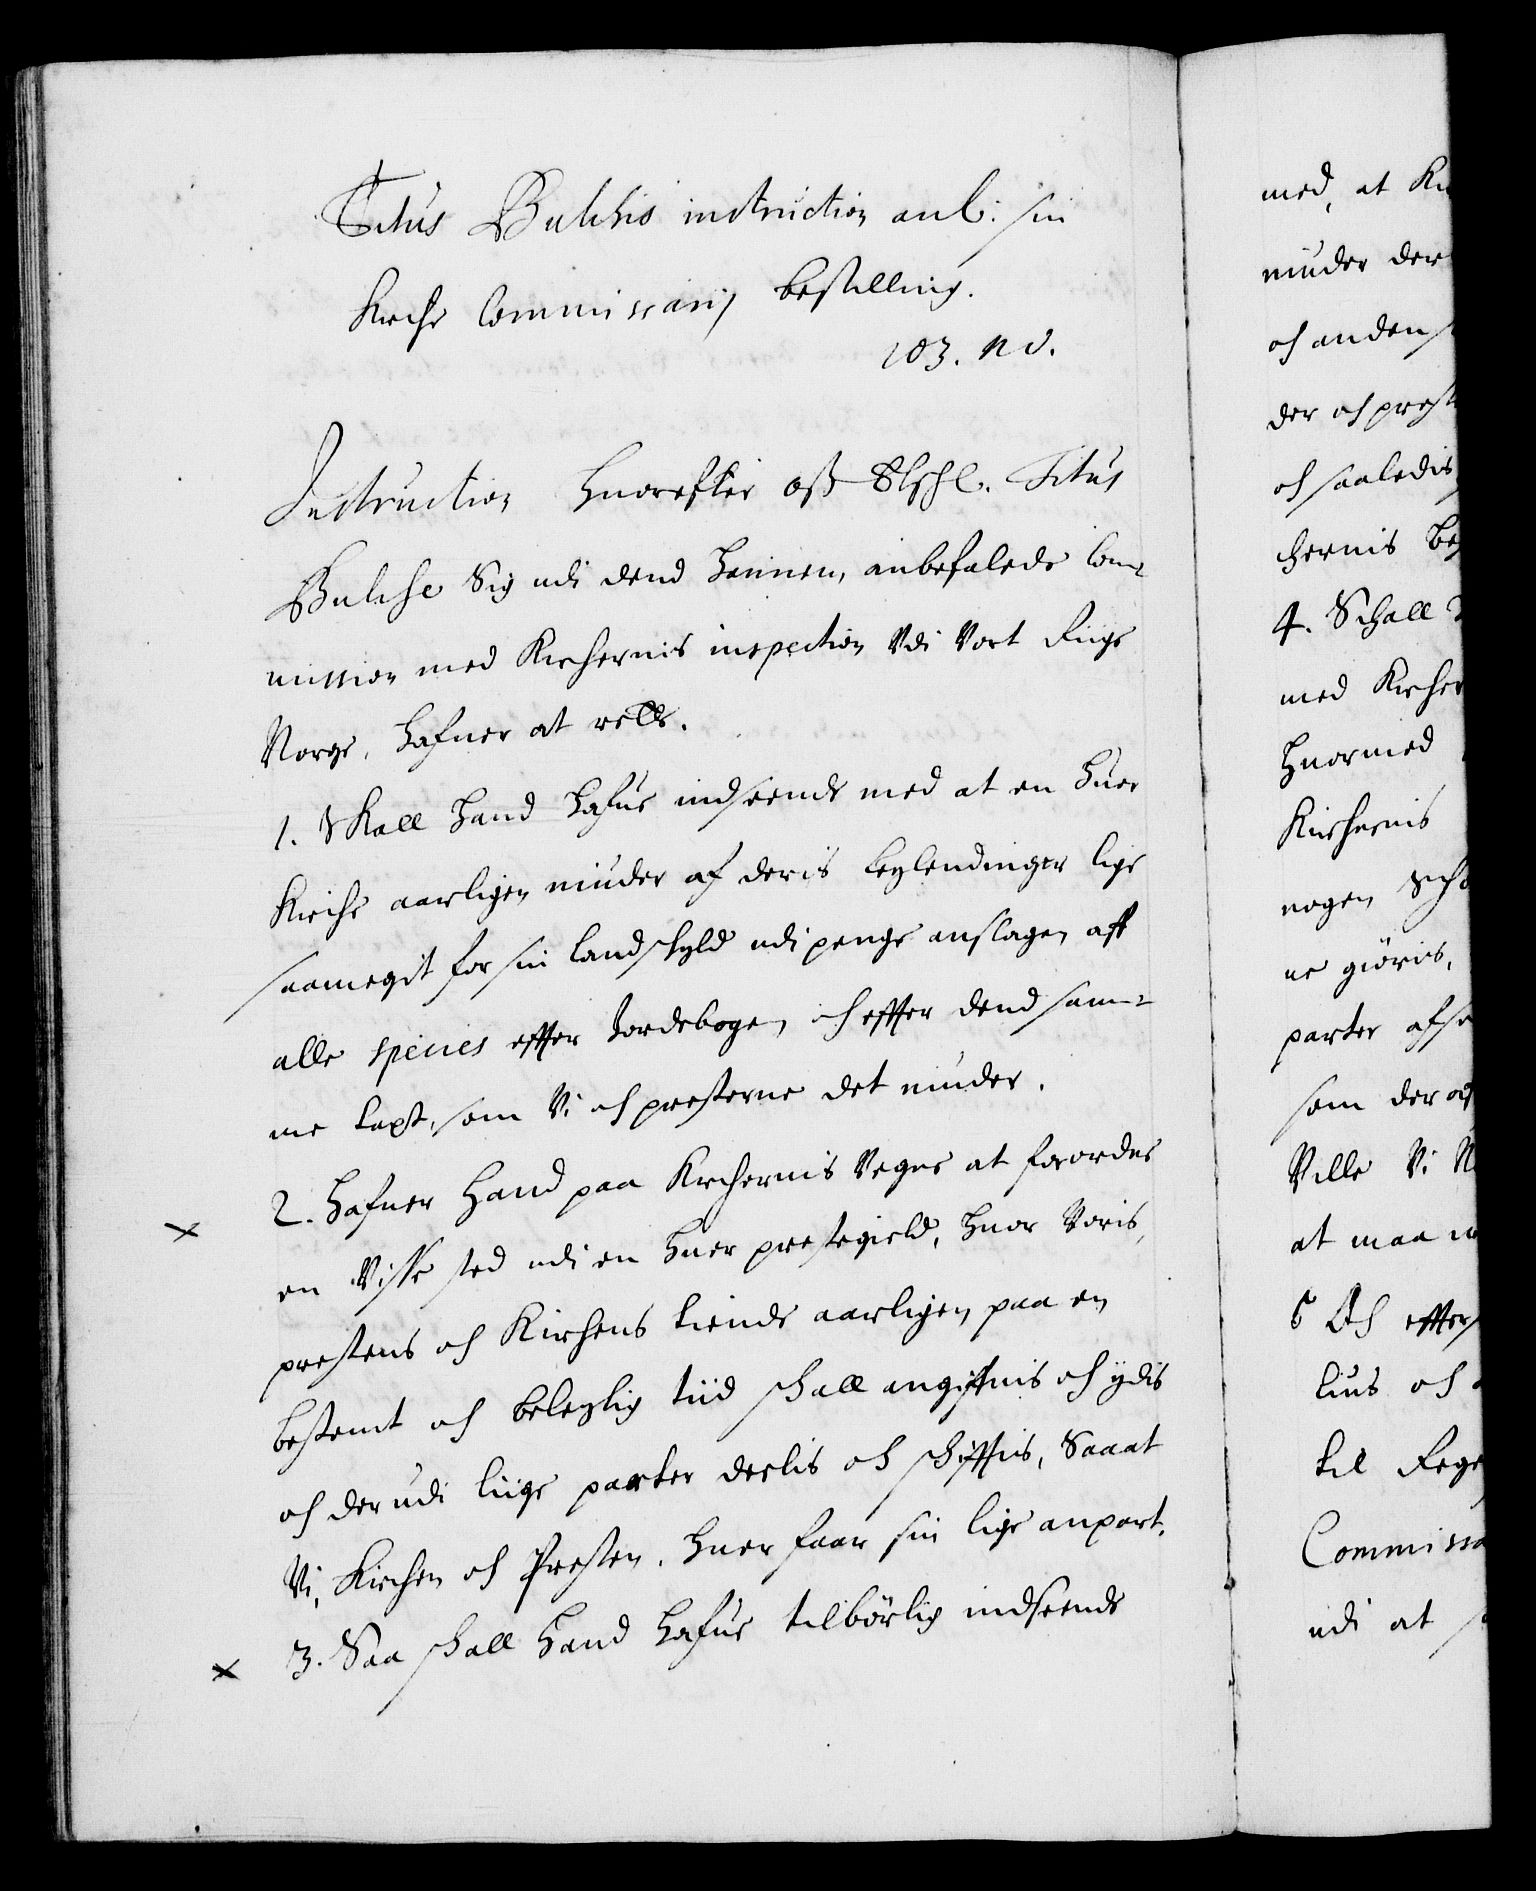 Titus Bulchis instruction anl: sin
Kirche Commissarij bestilling.
103. N d.
Instruction huorefter oß Elschl. Titus
Bulche Sig udi dend hannem, anbefalede Com-
mission med Kirchernis inspection Vdi Vort Rige
Norge, hafuer at rette.
1. Skall hand hafue indseende med at en huer
Kirche aarligen niuder af deris leylendinger lige
saameget for sin landskyld udi penge anslagen aff
alle species effter Jordebogen och effter dend sam-
me taxt, som Vi och presterne det niuder.
2. hafuer hand paa Kirchernis Vegne at forordne
en Visse sted udi en huer prestegield, huor Voris,
prestens och Kirchens tiende aarligen paa en
bestemt och beleylig tiid schall angifuis och ydis
och der udi liige parter deelis och schifftis, Saa at
Vi, Kirchen och Presten, huer faar sin lige anpart.
3. Saa schall hand hafue tilbörlig indseende
med, at
niuder der
och anden
der och prest
och saaledis
chernis
4. Schall
med Kircher
huormed
Kirchernis
nogen
ne giöris,
parter
som der
Ville Vi
at maa
5 Och effter
lius och
til Rege
Commissa
udi at